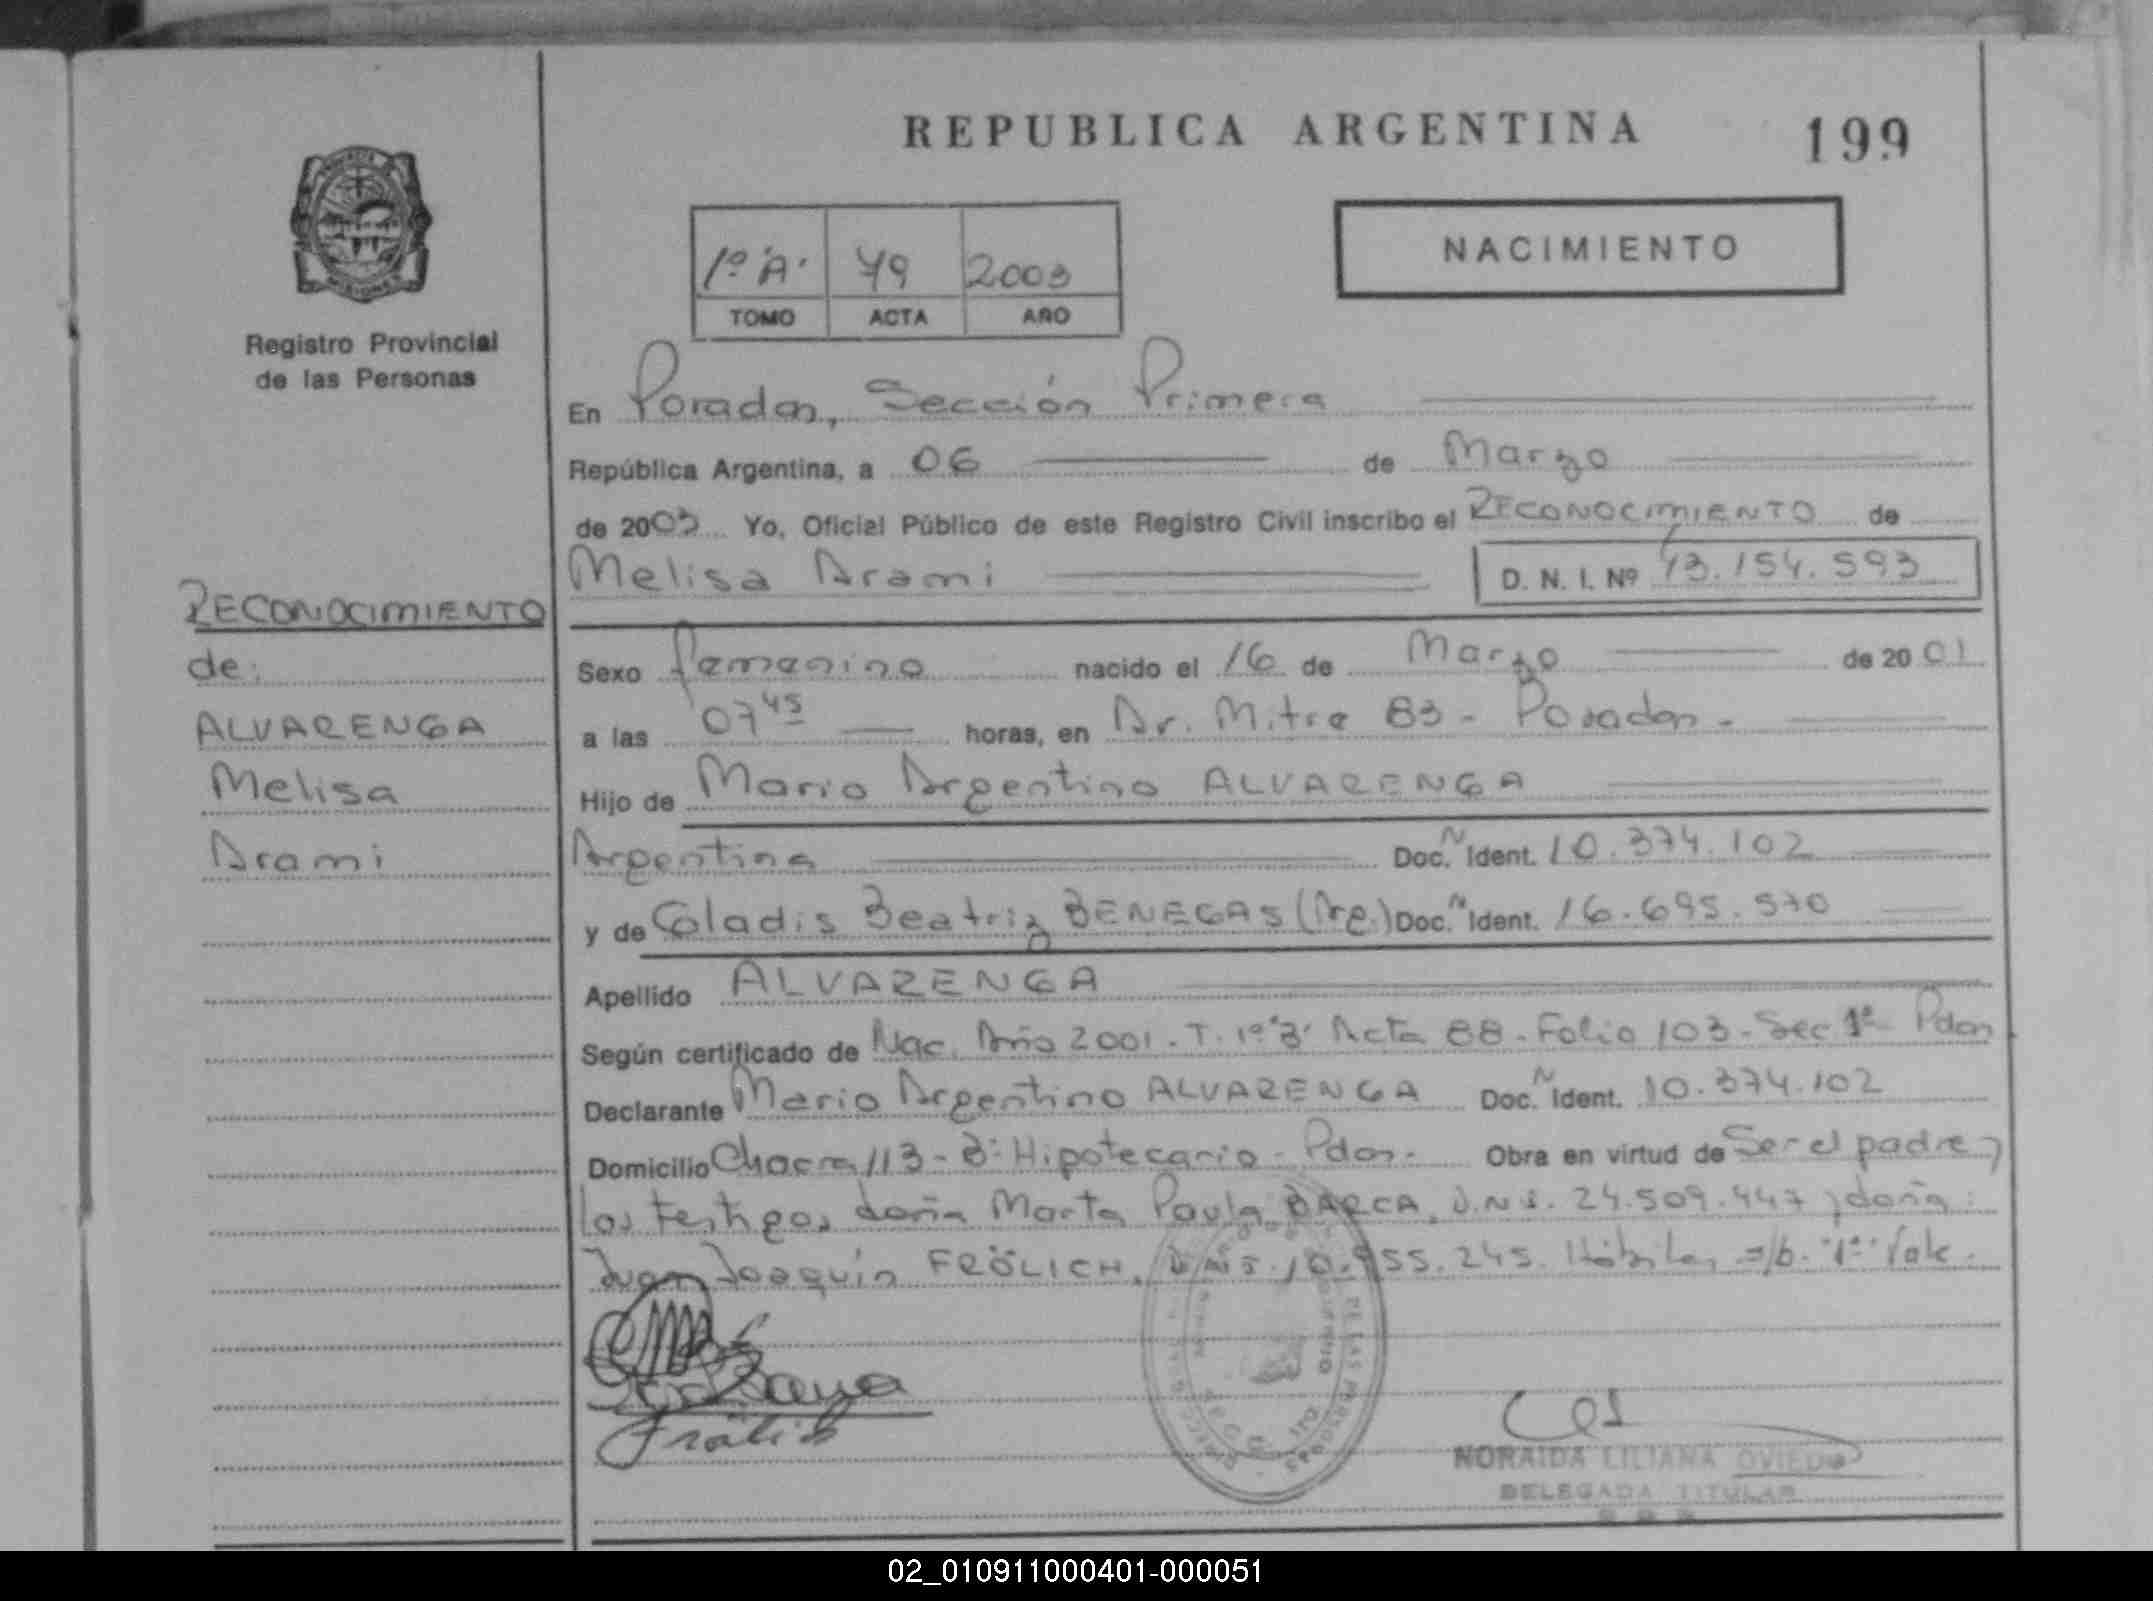 REPUBLICA ARGENTINA
199
1º "A" 79 2003
TOMO ACTA AÑO
NACIMIENTO
Registro Provincial
de las Personas
En Posadas, Sección Primera
República Argentina, a 06 de Marzo
de 2003 Yo, Oficial Público de este Registro Civil inscribo el RECONOCIMIENTO de
Melisa Arami D. N. I. Nº 43.154.593
RECONOCIMIENTO
de:
ALVARENGA
Melisa
Arami
Sexo femenino nacido el 16 de Marzo de 20 01
a las 07 45 horas, en Av. Mitre 83 - Posadas -
Hijo de Mario Argentino ALVARENGA
Argentina Doc. N Ident. 10.374.102
y de Gladis Beatriz BENEGAS (Arg.) Doc. N Ident. 16.695.570
Apellido ALVARENGA
Según certificado de Nac. Año 2001. T. 1º "B" Acta 88 - Folio 103 - Sec 1ª Pdas
Declarante Mario Argentino ALVARENGA Doc. N Ident. 10.374.102
Domicilio Chacra 113 - Bº Hipotecario - Pdas. Obra en virtud de Ser el padre y
los testigos doña Marta Paula BARCA, D.N.I. 24.509.447 y doña:
Juan Joaquín FRÖLICH, D.N.I. 10. 55.245. Hábiles s/b. "1º" Vale.
Frölich
NORAIDA LILIANA OVIEDO
DELEGADA TITULAR
02_010911000401-000051